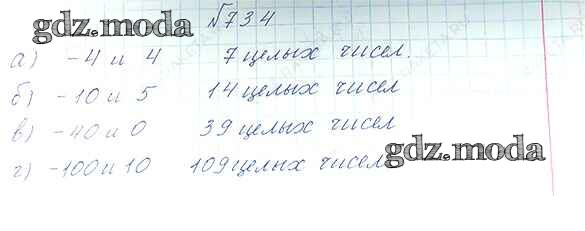 gdz.moda №734
а) -4 и 4 7 целых чисел.
б) -10 и 5 14 целых чисел
в) -40 и 0 39 целых чисел
г) -100 и 10 109 целых чисел
gdz.moda